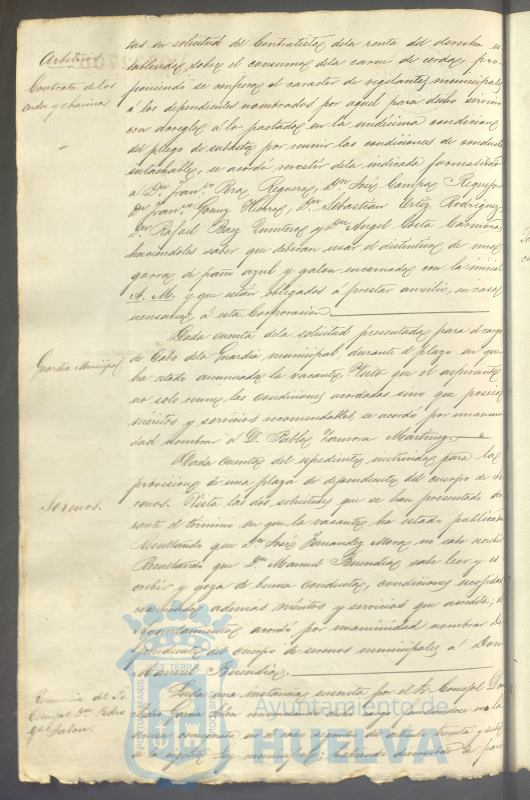 Arbitrios
Contrata de los
cerdos y chacinas
tas en solicitud del Contratista de la renta del derecho es
tablecido sobre el consumo de la carne de cerdo, pro
poniendo se confiera el caracter de vigilantes municipales
á los dependientes nombrados por aquel para dicho servicio
con arreglo á lo pactado en la undécima condicion
del pliego de subasta por reunir las condiciones de conducta
intachable, se acordó revestir de la indicada formalidad
á Dn. Franco. Perez Reguera, Dn. José Campos
Dn. Franco. Gomez, Dn. Sebastian Ortiz Rodriguez
Dn. Rafael Baez Quintero y Dn. Angel Costa Carmona
haciendoles saber que deberan usar el distintivo de una
gorra de paño azul y galon encarnado con la inicial
A. M. y que están obligados á prestar auxilio, en caso
necesario, á esta Corporacion.
Guardia Municipal
Dada cuenta de la solicitud presentada para el cargo
de Cabo de la Guardia municipal, durante el plazo en que
ha estado anunciada la vacante, Visto que el aspirante
no solo reune las condiciones acordadas sino que posee
méritos y servicios recomendables, se acordó por unanimi
dad nombrar á D. Pablo Zamora Martinez.
Serenos.
Dada cuenta del expediente instruido para la
provision de una plaza de dependiente del cuerpo de se
renos. Vista las dos solicitudes que se han presentado du
rante el termino en que la vacante ha estado publicada
Resultando que Dn. José Fernandez Mora no sabe escribir
Resultando que Dn. Manuel Buendia sabe leer y es
cribir y goza de buena conducta, condiciones
reuniendo además méritos y servicios que acredita; el
Ayuntamiento acordó por unanimidad nombrar de
pendiente del cuerpo de serenos municipales á Don
Manuel Buendia.
Renuncia del Sr.
Concejal Dn. Pedro
Gra. Jalon
Leida una instancia suscrita por el Sr. Concejal Don
Pedro Garcia Jalon renunciando dicho cargo por
en el caso segundo del articulo treinta y siete
de la ley municipal; habiendo
Ayuntamiento de
HUELVA